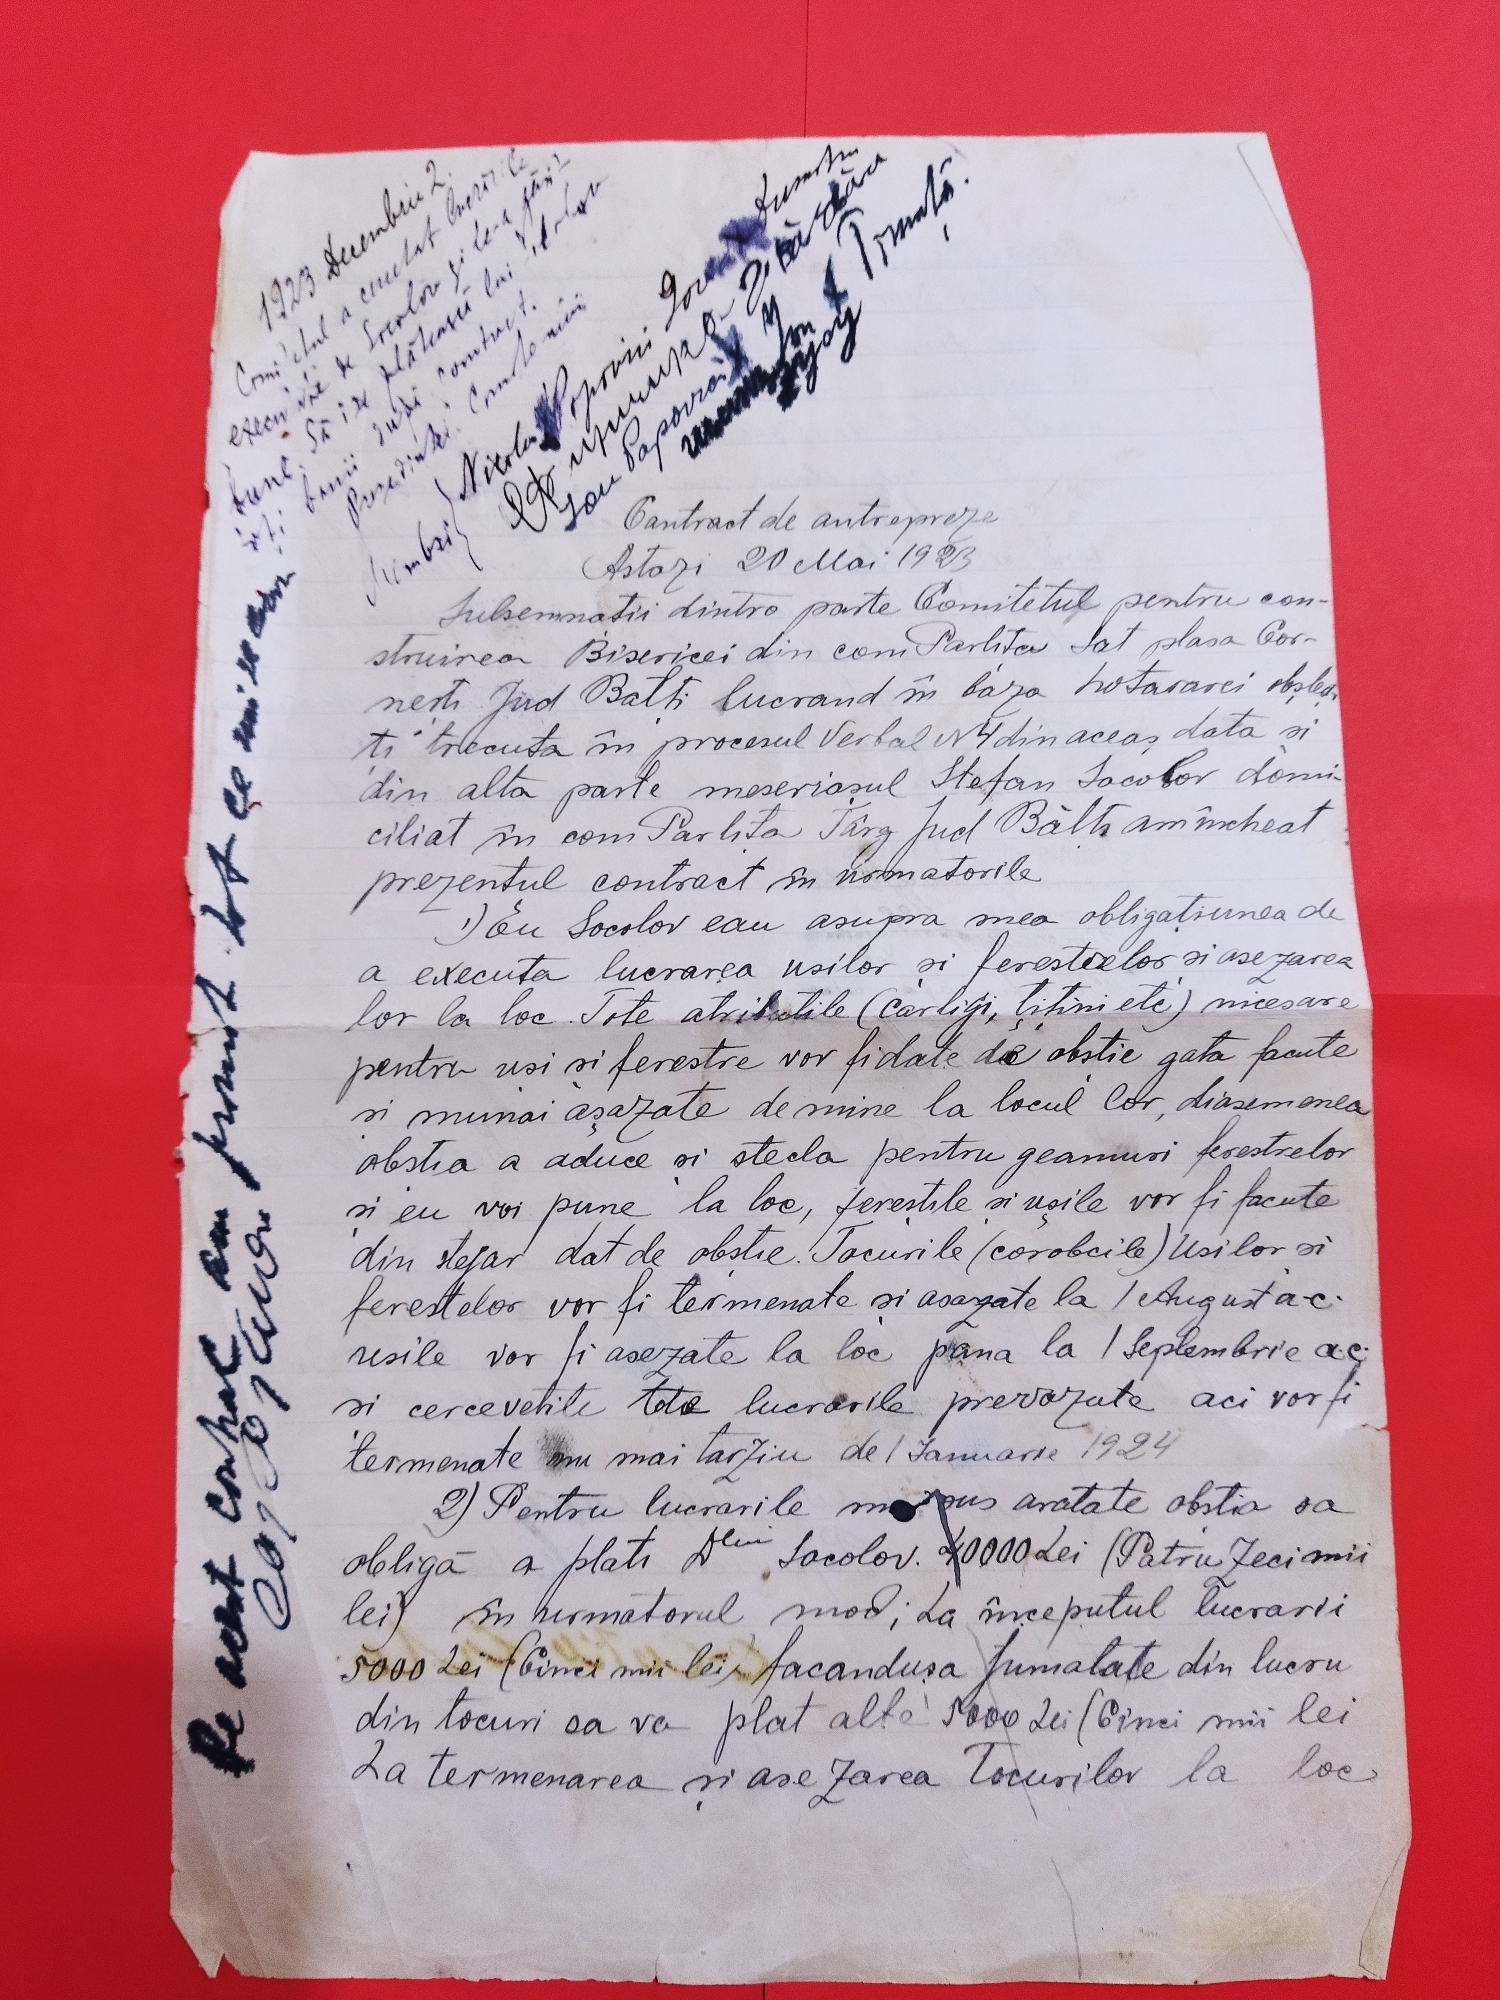 1923 Decembrie 2.
Comitetul a cercetat lucrările
executate de Socolov și le-a găsit
bune. Să i se plătească lui Socolov
toți banii după contract.
Președinte:
Membri { Nicolai Popovici
Ion Popovici
Ion
Contract de antrepreze
Astazi 20 Mai 1923
Subsemnatii dintro parte Comitetul pentru con-
struirea Bisericei din com Parlita Sat plasa Cor-
nesti Jud Bălti lucrand în baza hotararei obstes-
ti trecuta în procesul Verbal N4 din aceaș data si
din alta parte meseriasul Stefan Socolov domi-
ciliat în com Parlita Târg Jud Bălti am încheat
prezentul contract în urmatorile
1) Eu Socolov eau asupra mea obligațiunea de
a executa lucrarea usilor si ferestrelor si asezarea
lor la loc. Tote atributile (cârligi, țițini etc) nicesare
pentru usi si ferestre vor fi date de obstie gata facute
si numai așazate de mine la locul lor, diasemenea
obstia a aduce si stecla pentru geamuri ferestrelor
si eu voi pune la loc, ferestile si ușile vor fi facute
din stejar dat de obstie. Tocurile (corobcile) Usilor si
ferestelor vor fi termenate si asazate la 1 August a.c.
usile vor fi asezate la loc pana la 1 Septembrie a.c.
si cercevelile tote lucrarile prevazute aci vor fi
termenate nu mai tarziu de 1 Ianuarie 1924
2) Pentru lucrarile mai sus aratate obstia sa
obligă a plati Dlui Socolov. 40000 Lei (Patru Zeci mii
lei) în urmatorul mod; La începutul lucrarii
5000 Lei (Cinci mii lei) facandusa Jumatate din lucru
din tocuri sa va plat alte 5000 Lei (Cinci mii lei
La termenarea și asezarea Tocurilor la loc
Pe acest contract am primit tot ce mi se cuvine